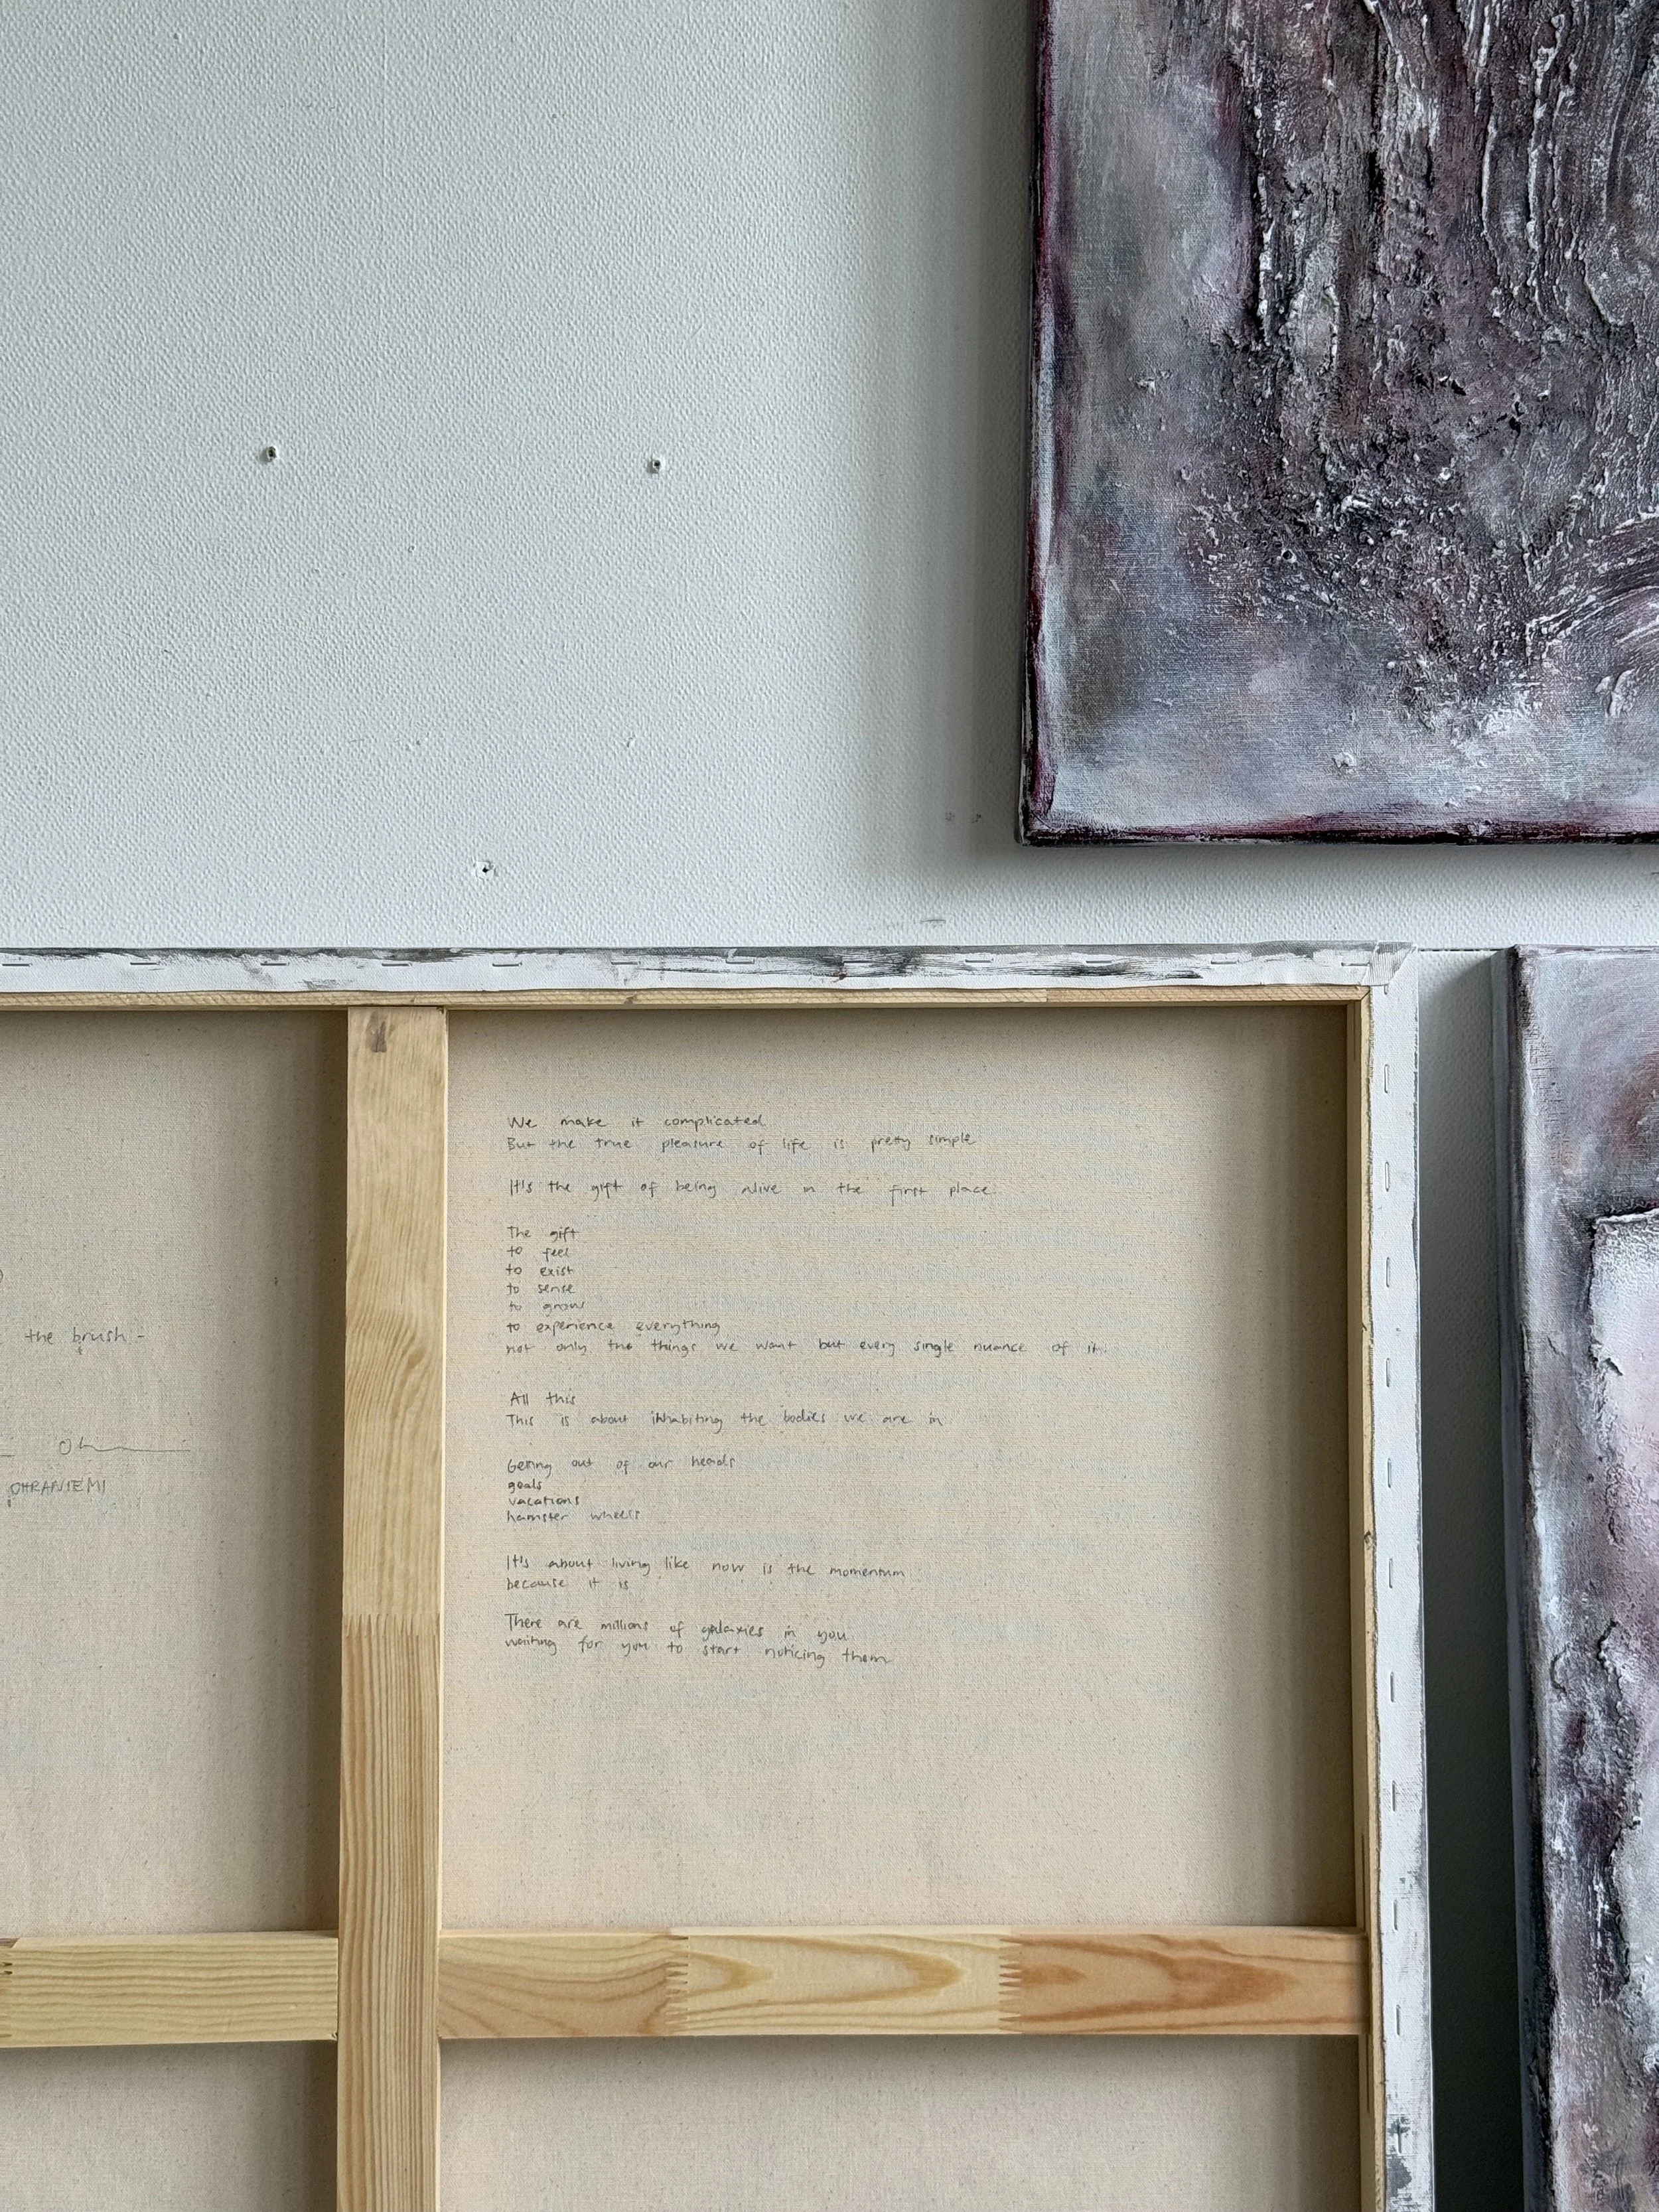 the brush -
OHRANIEMI
We make it complicated
But the true pleasure of life is pretty simple
It's the gift of being alive in the first place.
The gift
to feel
to exist
to sense
to grow
to experience everything
not only the things we want but every single nuance of it.
All this
This is about inhabiting the bodies we are in
Getting out of our heads
goals
vacations
hamster wheels
It's about living like now is the momentum
because it is
There are millions of galaxies in you
waiting for you to start noticing them